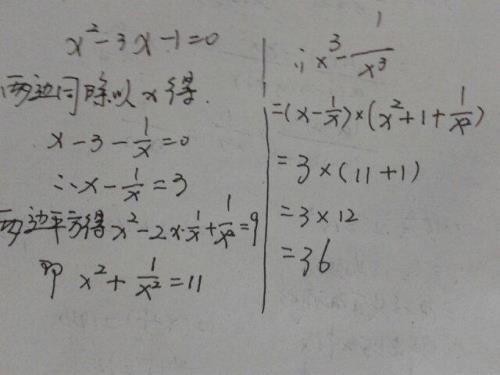 x²-3x-1=0
两边同除以x得.
x-3-\frac{1}{x}=0
∴x-\frac{1}{x}=3
两边平方得x²-2x·\frac{1}{x}+\frac{1}{x²}=9
即 x²+\frac{1}{x²}=11
∴x³-\frac{1}{x³}
=(x-\frac{1}{x})×(x²+1+\frac{1}{x²})
=3×(11+1)
=3×12
=36